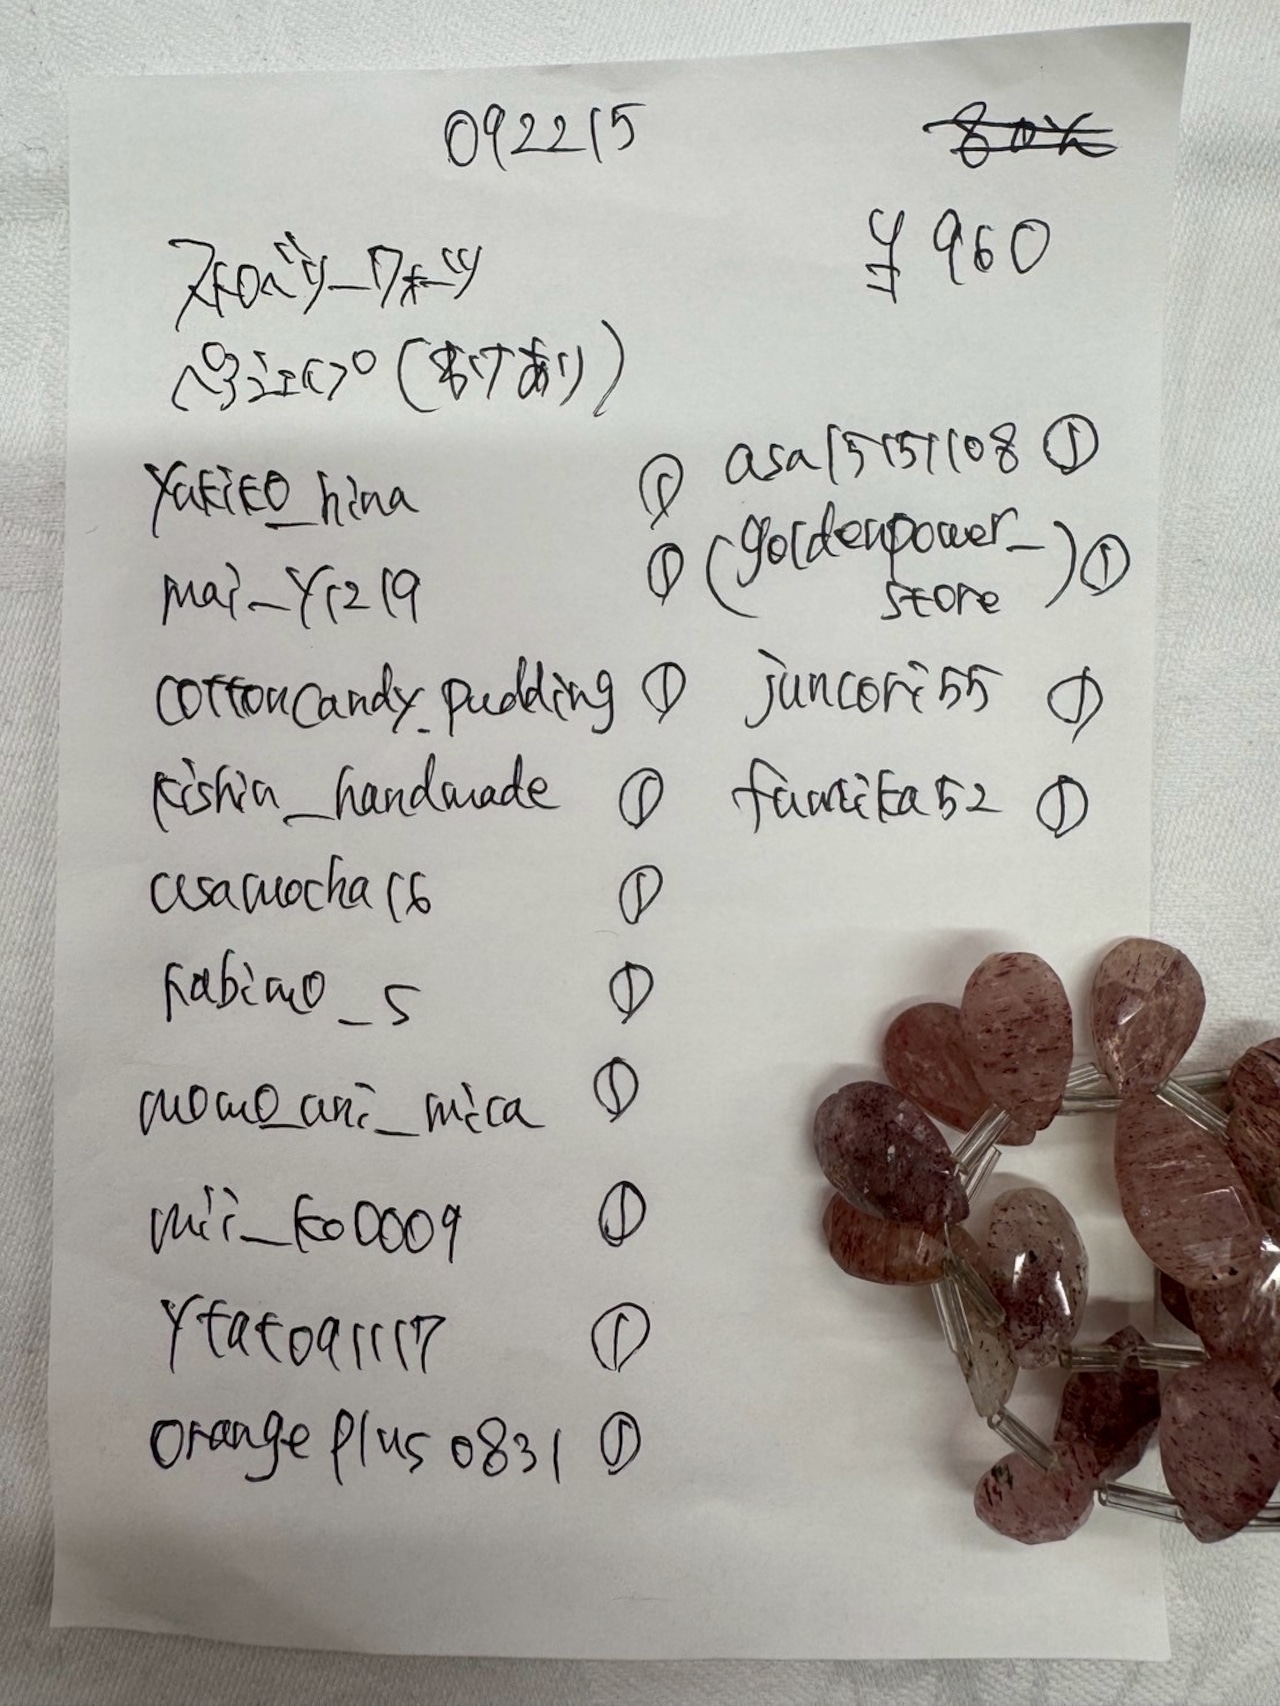 092215
80%
¥960
ストロベリークォーツ
ペアシェイプ(わけあり)
yukiko_hina ①
mai_y1219 ①
cottoncandy_pudding ①
kishin_handmade ①
usamocha16 ①
habimo_5 ①
momo_ani_mica ①
mii_ko0009 ①
ytato91117 ①
orangeplus0831 ①
asa15151108 ①
(goldenpower_
store) ①
juncori55 ①
fumika52 ①